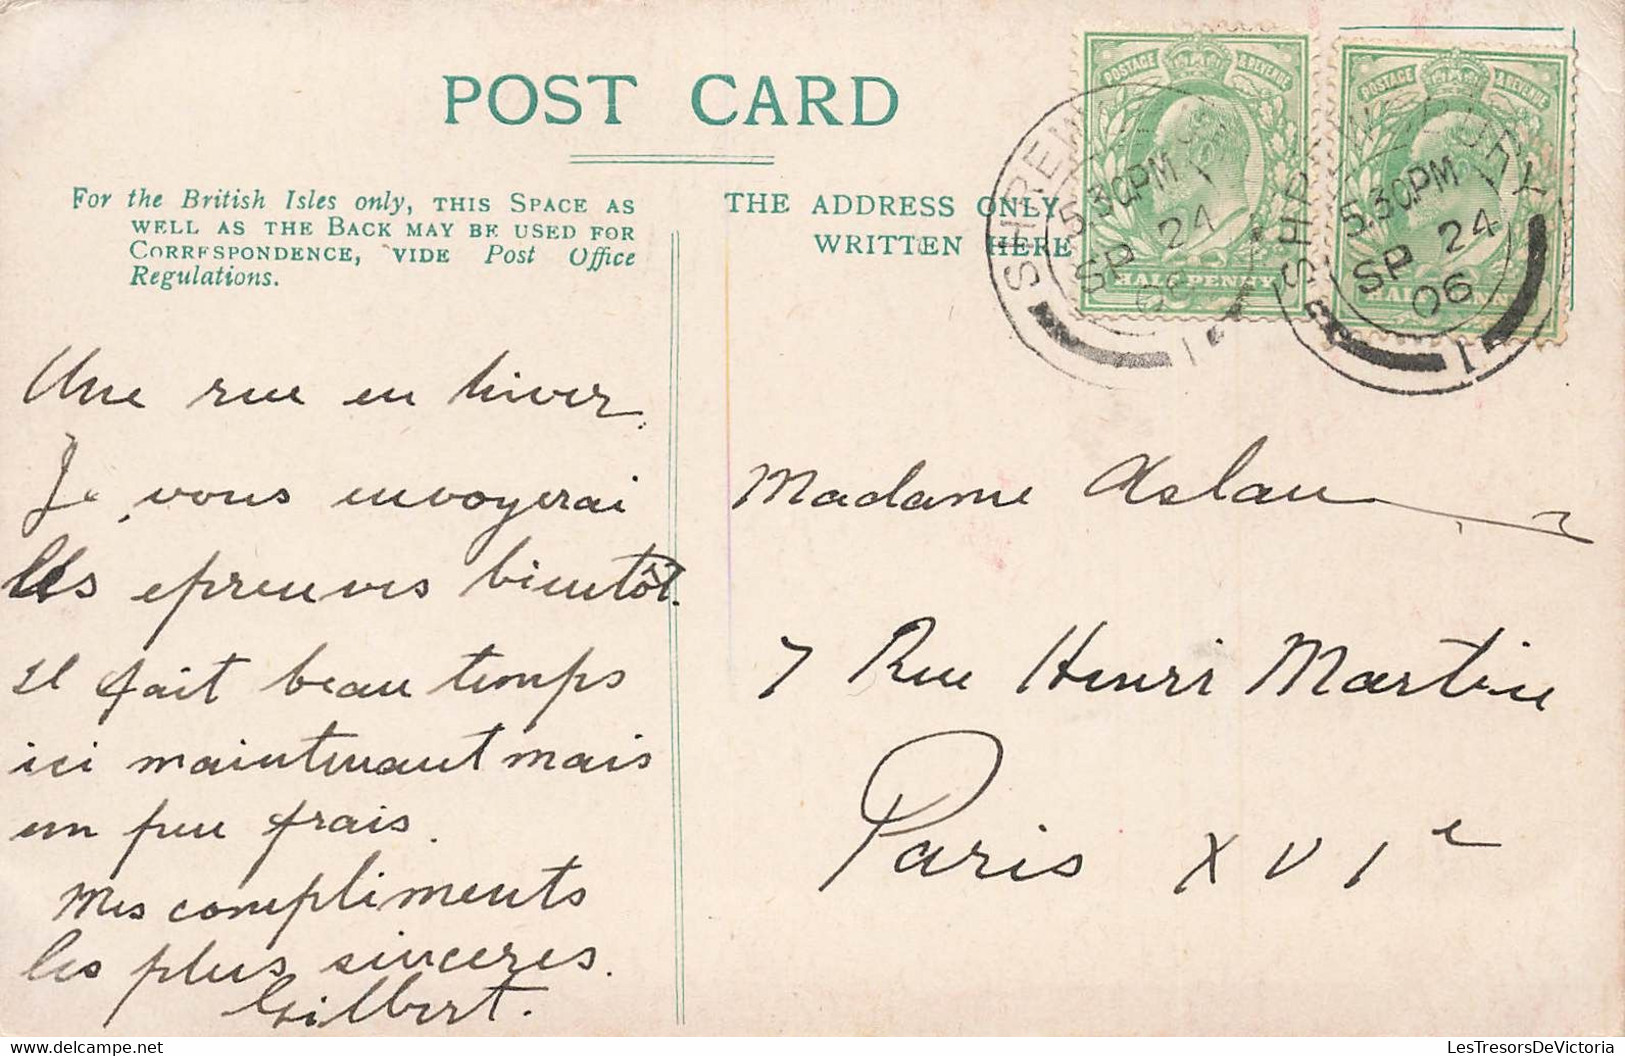 POST CARD
For the British Isles only, THIS SPACE AS
WELL AS THE BACK MAY BE USED FOR
CORRESPONDENCE, VIDE Post Office
Regulations.
THE ADDRESS ONLY
WRITTEN HERE
POSTAGE & REVENUE
HALF PENNY
POSTAGE & REVENUE
SHREWSBURY
5.30PM
SP 24
06
1
SHREWSBURY
5.30PM
SP 24
06
1
Une rue en hiver.
Je vous envoyerai
les epreuves bientôt.
il fait beau temps
ici maintenant mais
un peu frais.
Mes compliments
les plus sinceres.
Gilbert.
Madame Aslan
7 Rue Henri Martin
Paris XVIe
LesTresorsDeVictoria